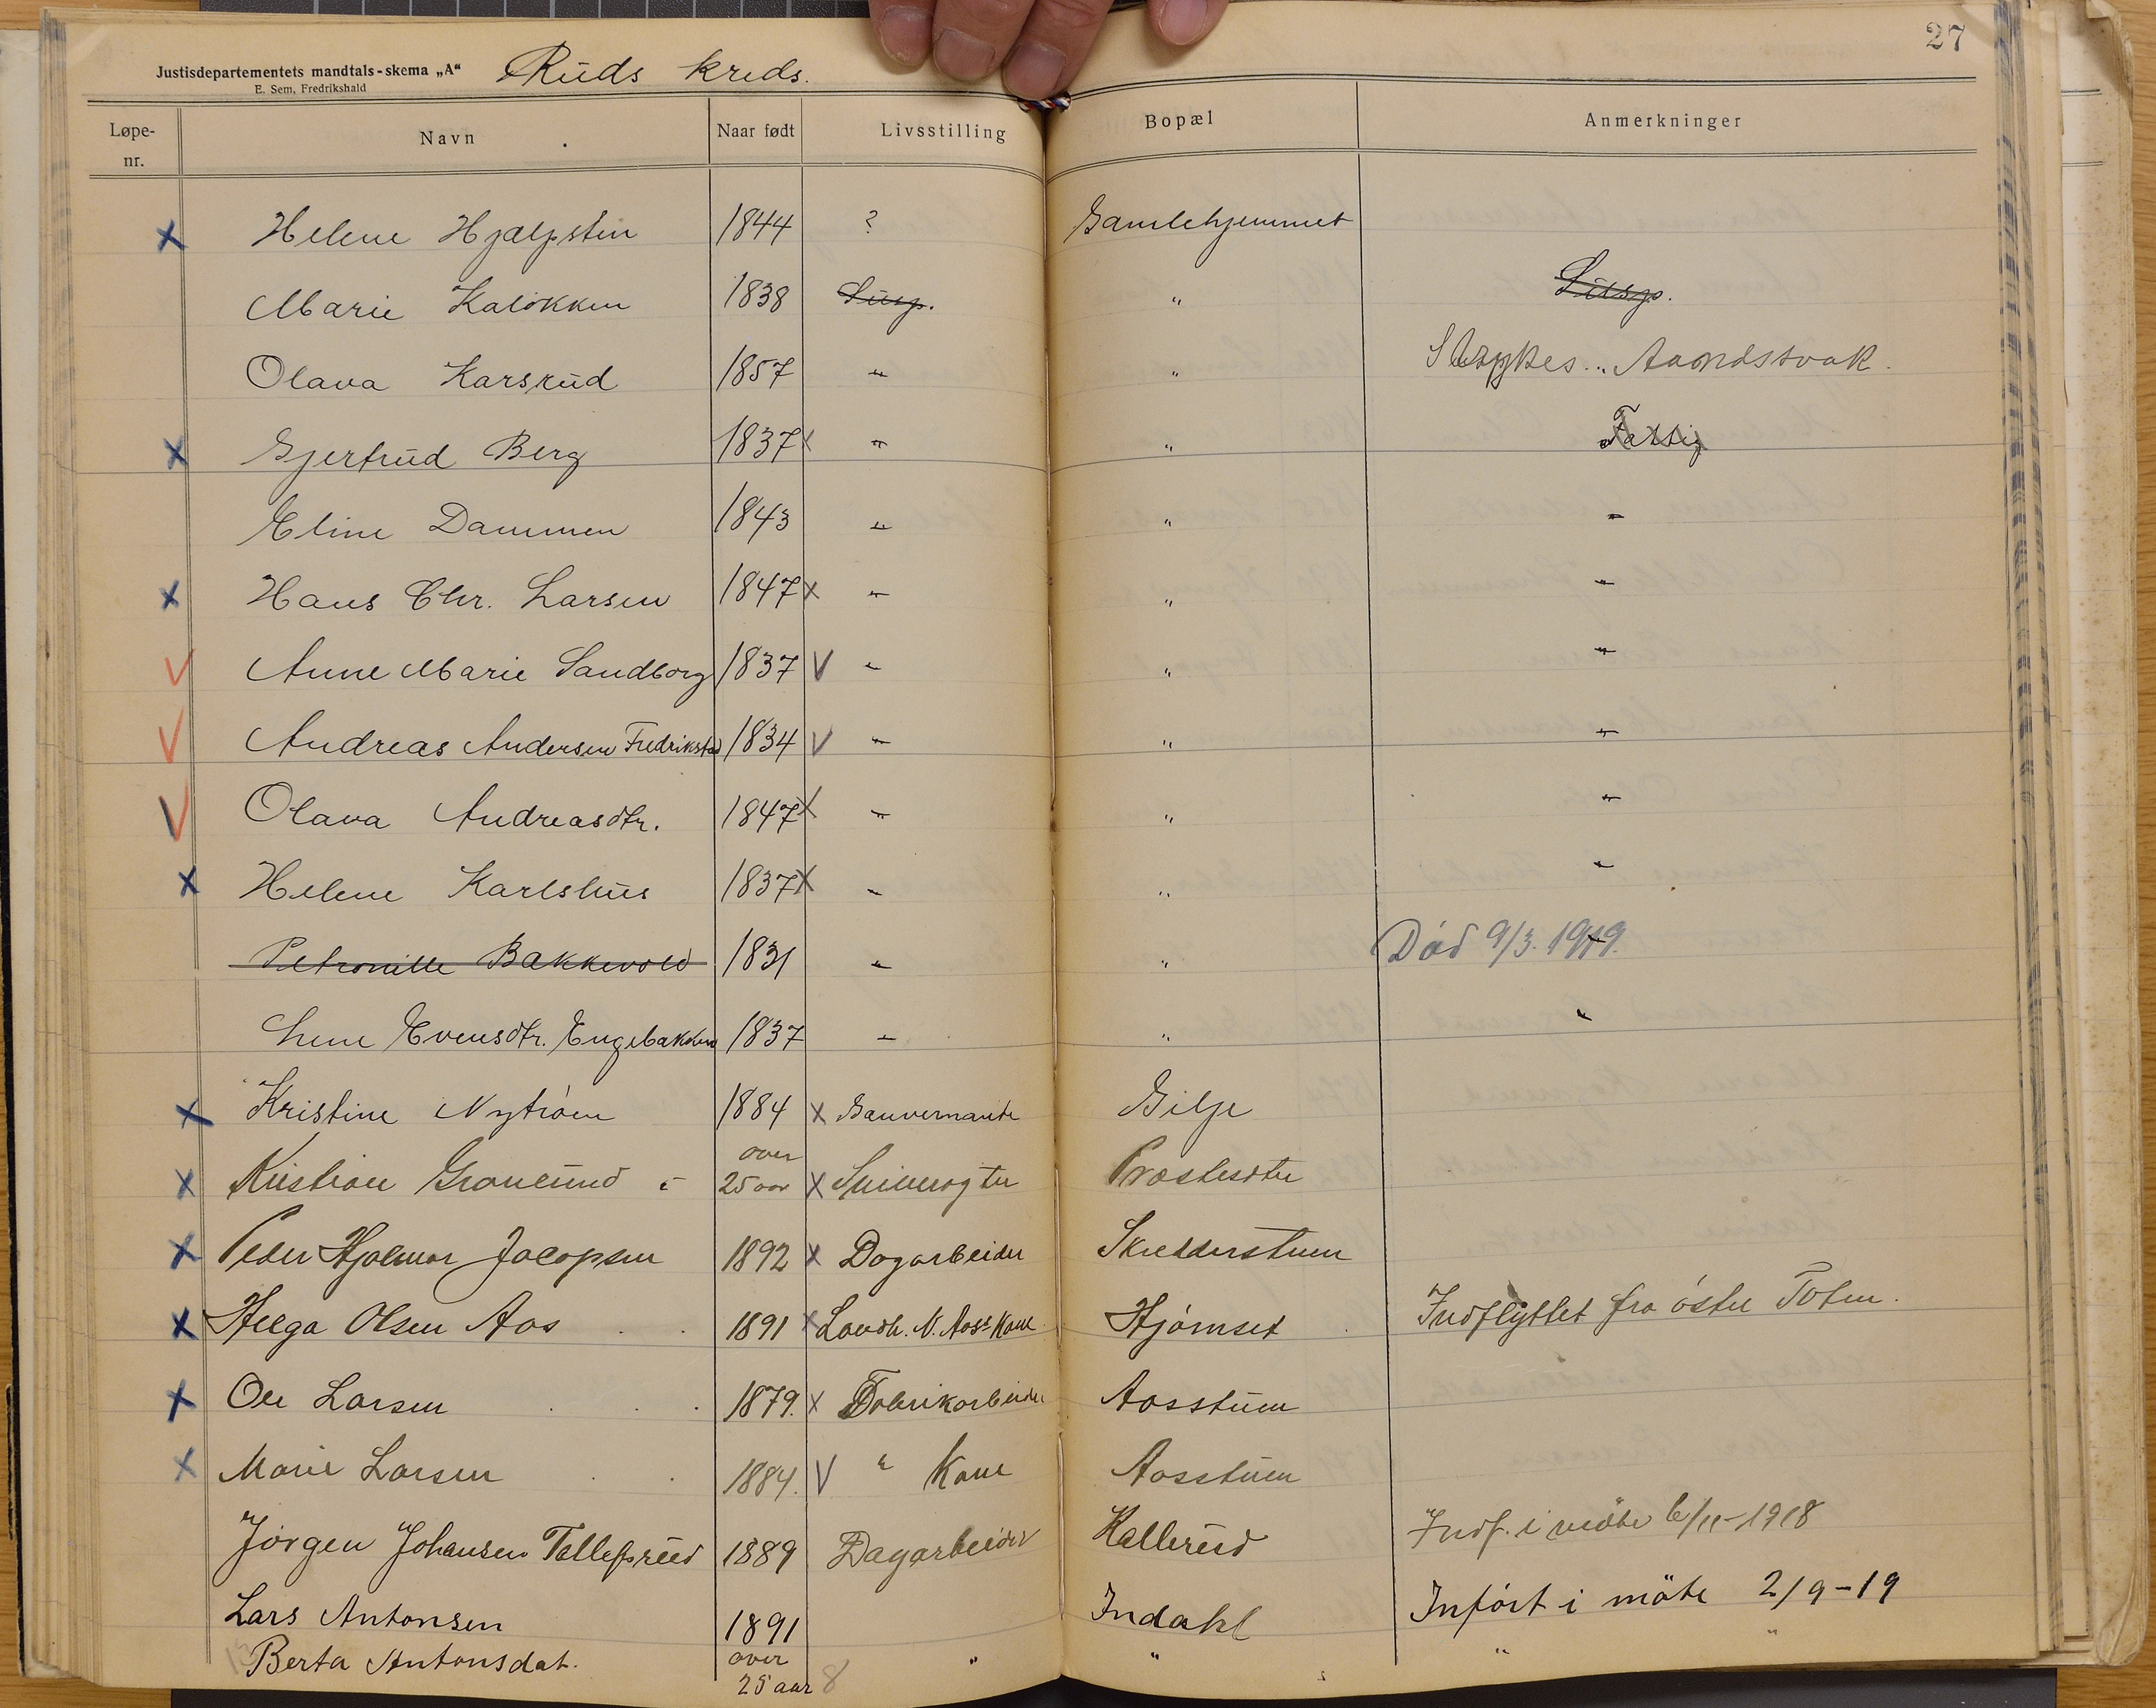 27
Justisdepartementets mandtals-skema „A“ Ruds kreds.
E. Sem, Fredrikshald
Løpe-nr. Navn Naar født Livsstilling Bopæl Anmerkninger
x Helene Hjælpsten 1844 ? Gamlehjemmet
Marie Kaløkken 1838 Susp. " Susp.
Olava Karsrud 1857 " " Strykes. Aandssvak.
x Gjertrud Berg 1837 x " " Fattig
Eline Dammen 1843 " " "
x Hans Chr. Larsen 1847 x " " "
V Anne Marie Sandborg 1837 V " " "
V Andreas Andersen Fredrikstad 1834 V " " "
V Olava Andreasdtr. 1847 x " " "
x Helene Karlshus 1837 x " " "
Petronille Bakkevold 1831 " " Død 9/3. 1919.
Lene Evensdtr. Engebakken 1837 " " "
x Kristine Nytrøen 1884 x Gauvernante Gilje
x Kristian over 25 aar x Præstesæter
x Peder Hjalmar Jacopsen 1892 x Dagarbeider Skredderstuen
x Helga Olsen Aas 1891 x Landh. N. Aas's Kone Hjørnset Indflyttet fra østre Toten.
x Ole Larsen 1879. x Fabrikarbeider Aasstuen
x Marie Larsen 1884. V " Kone Aasstuen
Jørgen Johansen Tollefsrud 1889 Dagarbeider Kallerud Indf. i møte 6/11-1918
Lars Antonsen 1891 Indahl Inført i møte 2/9-19
Berta Antonsdat. over 25 aar 8 " " " "